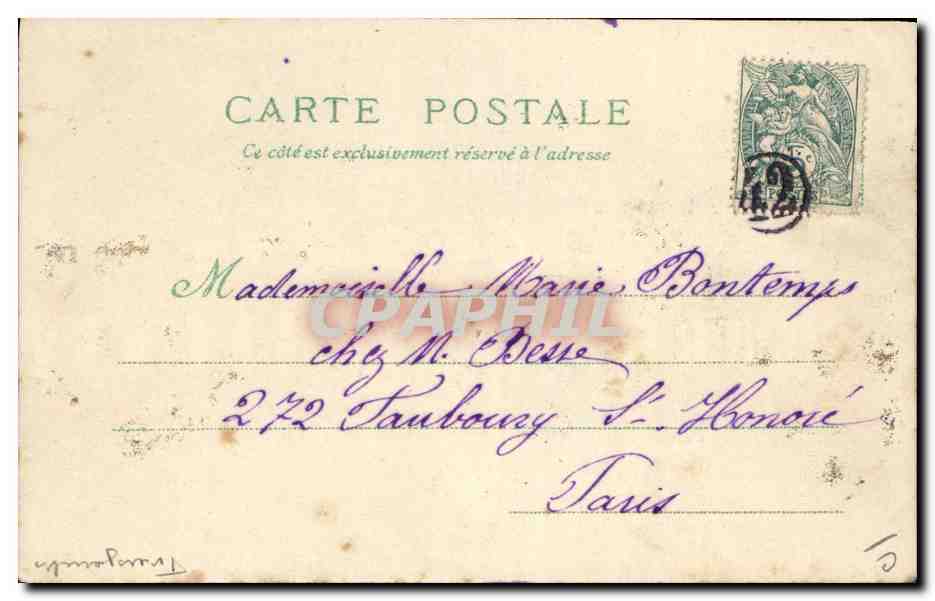 CARTE POSTALE
Ce côté est exclusivement réservé à l'adresse
12
Mademoiselle Marie Bontemps
CPAPHIL
chez M. Besse
272 Faubourg St. Honoré
Paris